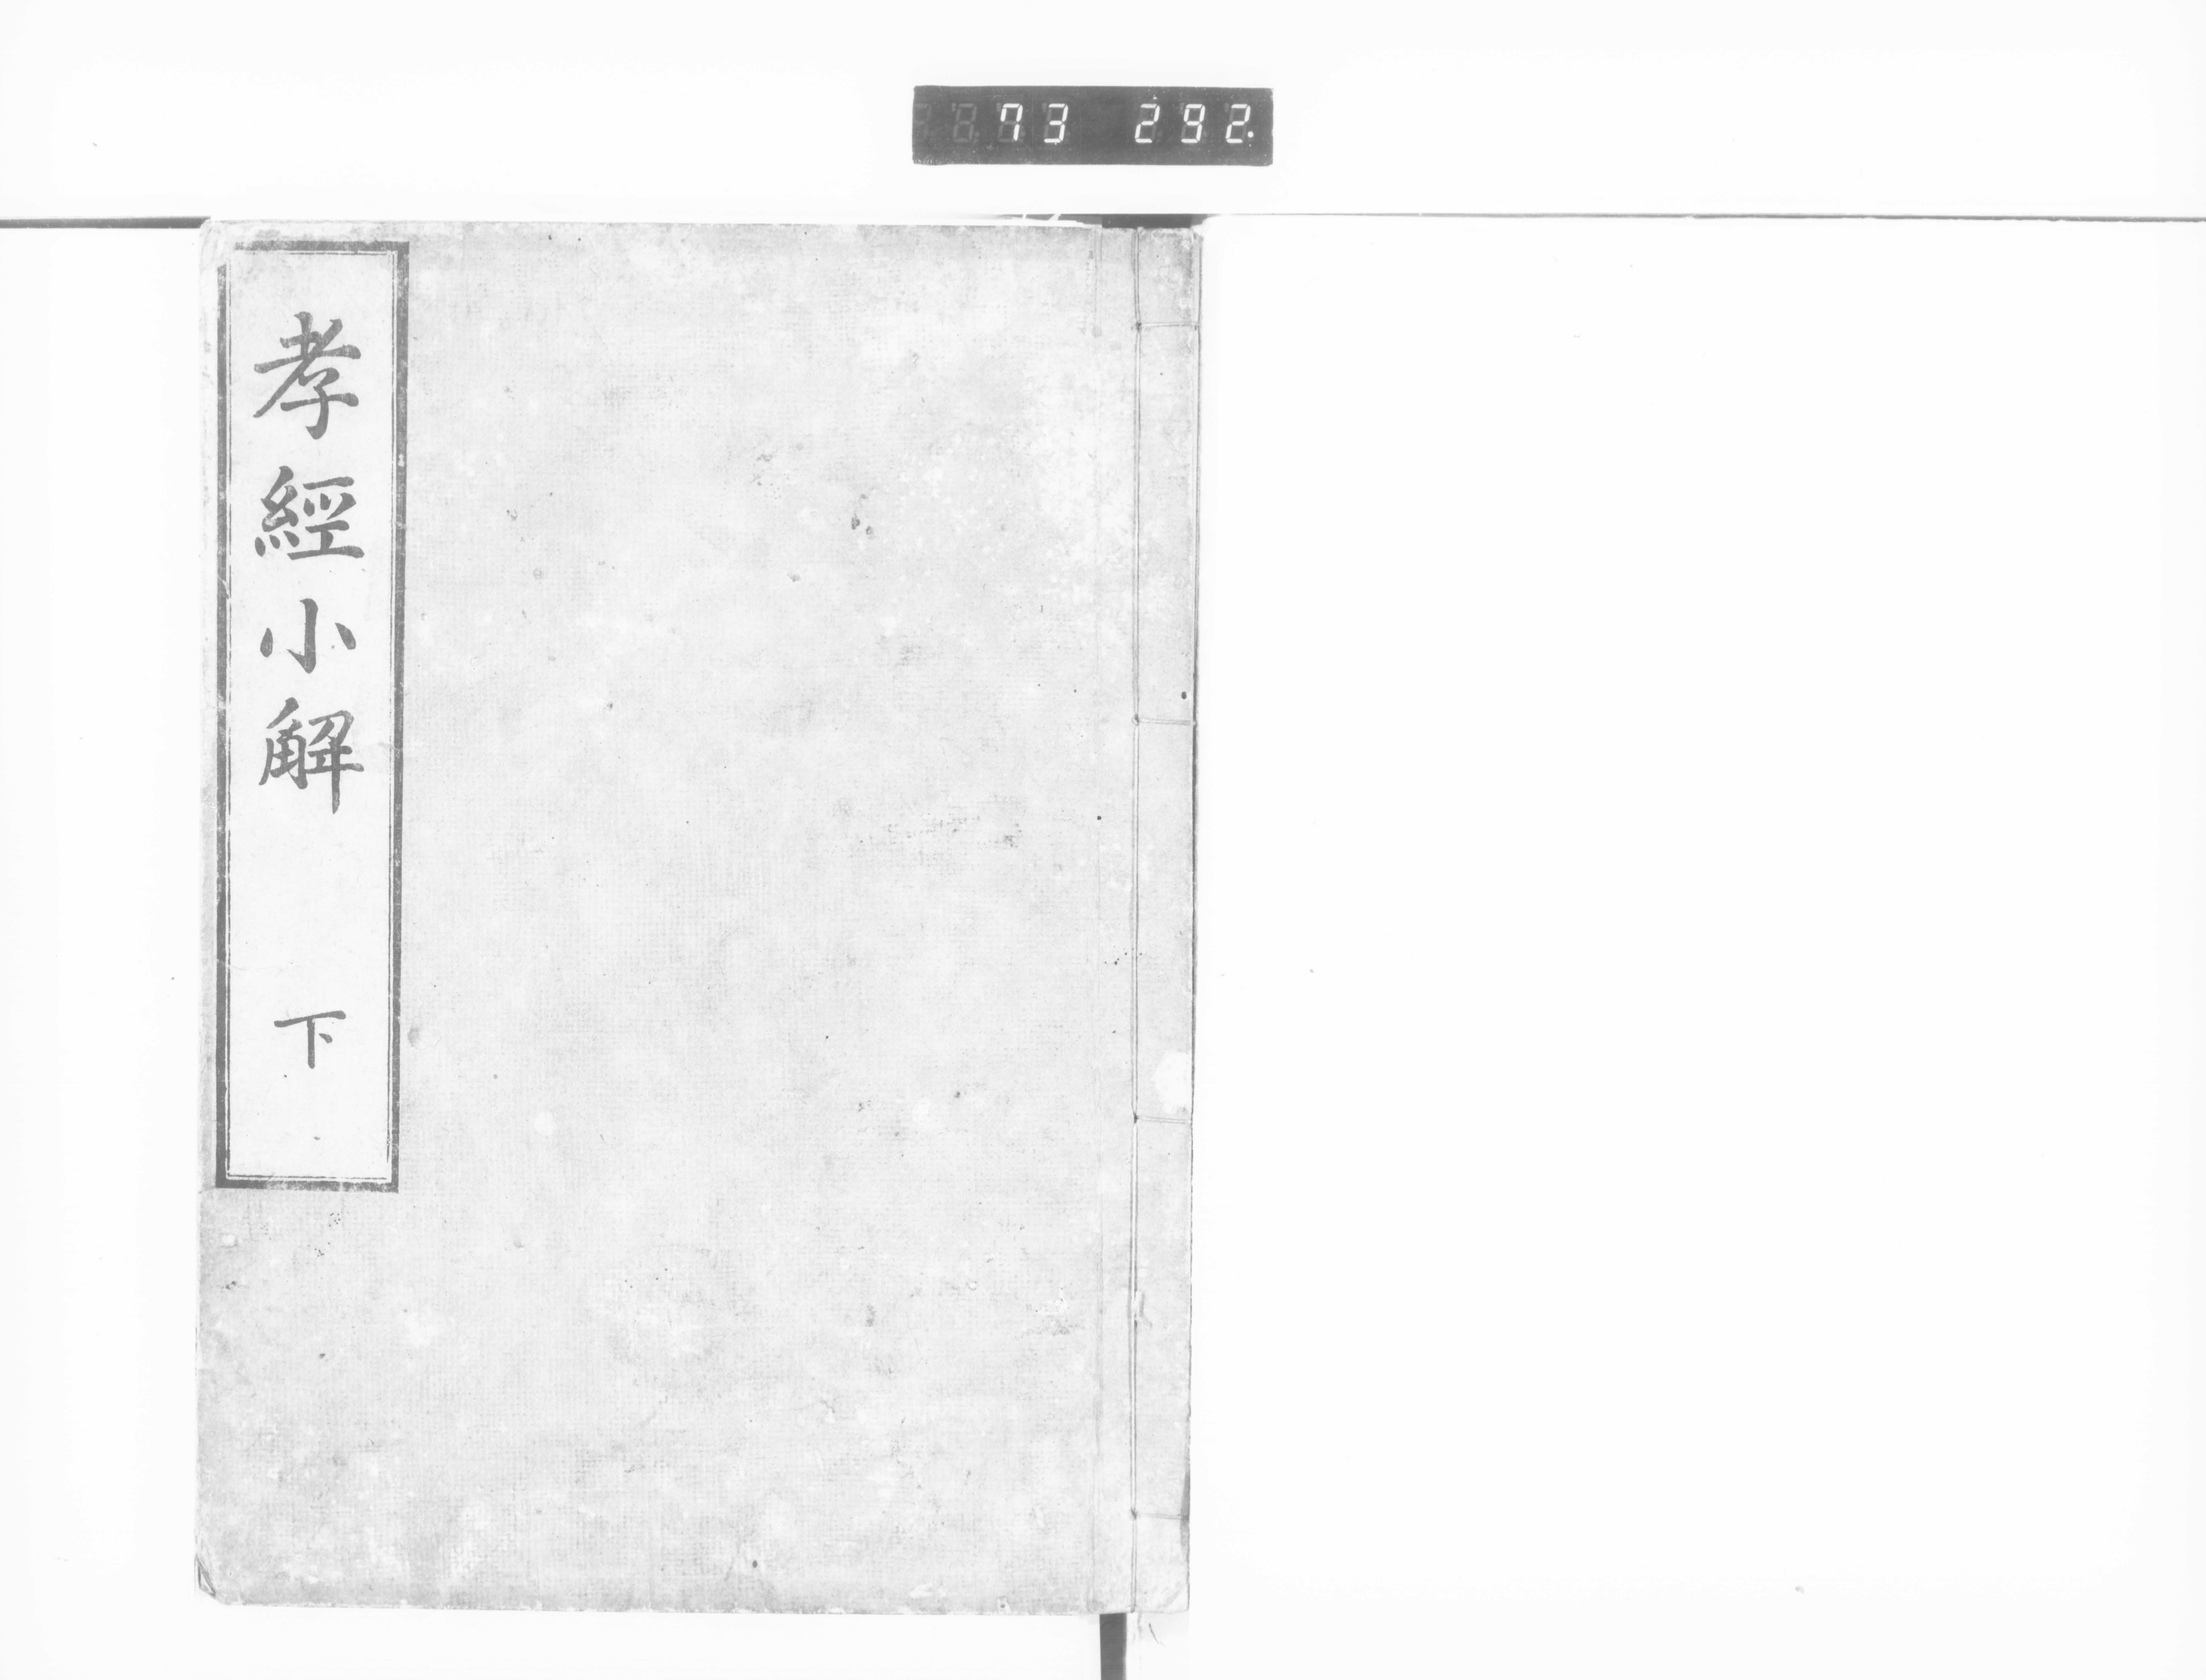 73 292.
孝經小解 下